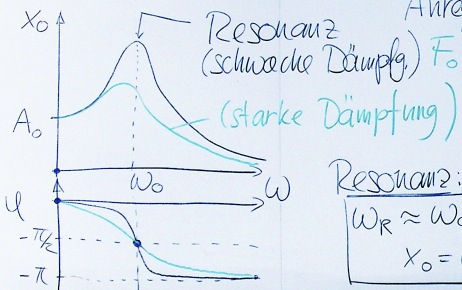 X₀
Resonanz
(schwache Dämpfg.)
F₀
(starke Dämpfung)
A₀
ω₀
ω
Resonanz:
φ
ω_R ≈ ω₀
-π/2
x₀ =
-π